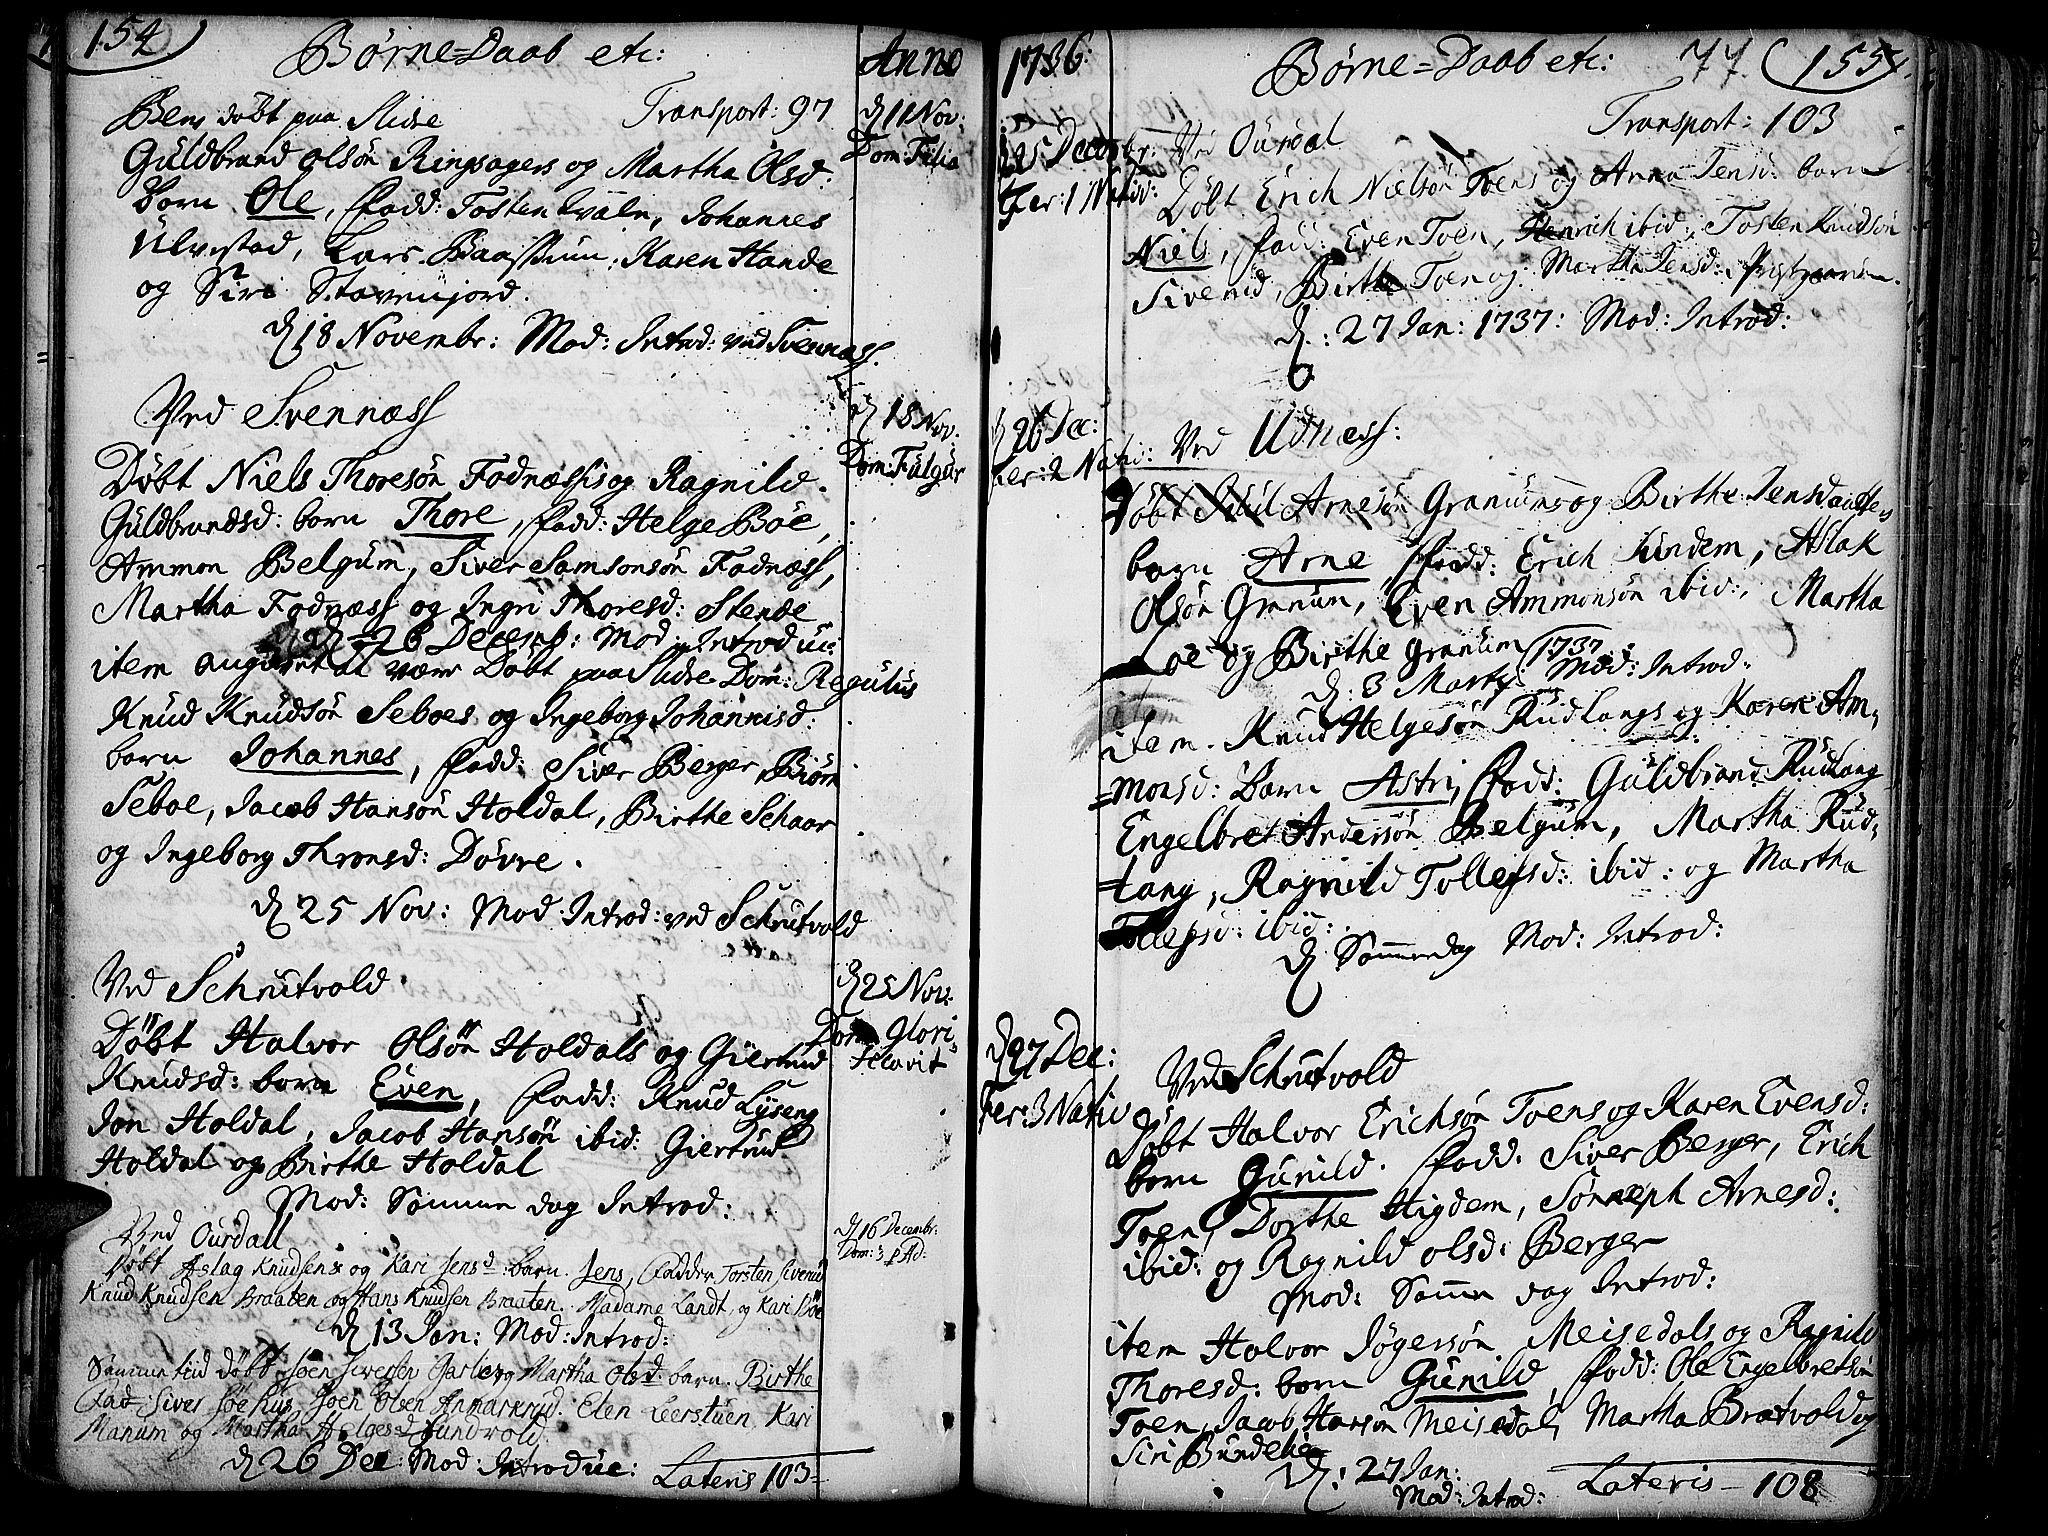 154
Børne=Daab etc:
Anno
Transport: 97
Bem døbt paa Slidre
d 11 Nov:
Dom: Filia
Guldbrand Olsøn Ringsagers og Martha Olsd:
barn Ole, fadd: Tosten Qvale, Johannes
Ulvestad, Lars Baasstuun, Karen Hande
og Siri Stavenjord.
d 18 Novembr: Mod: Introd: ved Svennæss.
Ved Svennæss
d 18 Nov:
Dom: Fulgur
Døbt Niels Thoresøn Fodnæssis og Ragnild
Guldbrandsd: barn Thore, fadd: Helge Bøe,
Ammon Belgum, Siver Samsonsøn Fodnæss,
Martha Fodnæss og Ingri Thoresd: Stende
d 26 Decemb: Mod: Introduc:
item angivet at være Døbt paa Slidre Dom: Regulus
Knud Knudsøn Seboes og Ingeborg Johannisd:
barn Johannes, fadd: Siver Berger, Biørn
Seboe, Jacob Hansøn Holdal, Birthe Schaar
og Ingeborg Thronsd: Døvre.
d 25 Nov: Mod: Introd: ved Schrutvold
Ved Schrutvold
d 25 Nov:
Dom: Glori
ficavit
Døbt Halvor Olsøn Holdals og Giertrud
Knudsd: barn Even, fadd: Knud Lyseng
Jon Holdal, Jacob Hansøn ibid: Giertrud
Holdal og Birthe Holdal
Mod: Samme dag Introd:
Ved Ourdall
d 16 Decembr:
Dom: 3 p Ad:
Døbt Aslag Knudsens og Kari Jensd: barn. Jens, Fadder Torsten Siverud
Knud Knudsen Braaten og Hans Knudsen Braaten. Madame Landt, og Kari Bøe
d 13 Jan: Mod: Introd:
Samme tiid døbt Joen Siversen Garberg Martha Olsd: barn. Birthe
Fad: Siver Joen Olsen Anmarkrud. Elen Leerstuen, Kari
Manum og Martha Helgesd Sundvold.
d 26 Dec: Mod: Introduc:
Lateris 103
1736:
Børne=Daab etc:
77
155
Transport: 103
d 25 Decembr:
Fer: 1 Nativ:
Ved Ourdal
Døbt Erich Nielsøn Toens og Anna Jensd: barn
Niels, fadd: Even Toen, Henrich ibid: Tosten Knudsøn
Siverud, Birthe Toen og Martha Jensd: Pristgaarden.
d: 27 Jan: 1737: Mod: Introd:
d 26 Dec:
Fer: 2 Nativ:
Ved Udnæss:
Døbt Arnesøn Granums og Birthe Jensdaatters
barn Arne, fadd: Erich Sundem, Aslak
Olsøn Granum, Even Ammonsøn ibid:, Martha
Loe og Birthe Granum
d: 3 Marty 1737: Mod: Introd:
item. Knud Helgesøn Rudlangs og Karen Am=
=monsd: Barn Astri, fadd: Guldbrand Rudlang
Engelbret Andersøn Belgum, Martha Rud=
=lang, Ragnild Tollefsd: ibid: og Martha
Tollefsd: ibid:
d Sammedag Mod: Introd:
d 27 Dec:
Fer: 3 Nativ
Ved Schrutvold
Døbt Halvor Erichsøn Toens og Karen Evensd:
barn Gunild. fadd. Siver Berger, Erich
Toen, Dorthe Higdem, Sønneph Arnesd:
ibid: og Ragnild Olsd: Berger
Mod: Samme dag Introd:
item Halvor Jøgersøn Meisedals og Ragnild
Thoresd: barn Gunild, fadd: Ole Engelbretsøn
Toen, Jacob Hansøn Meisedal, Martha Bratvold og
Siri Bundelie
d: 27 Jan:
Mod: Introd:
Lateris – 108